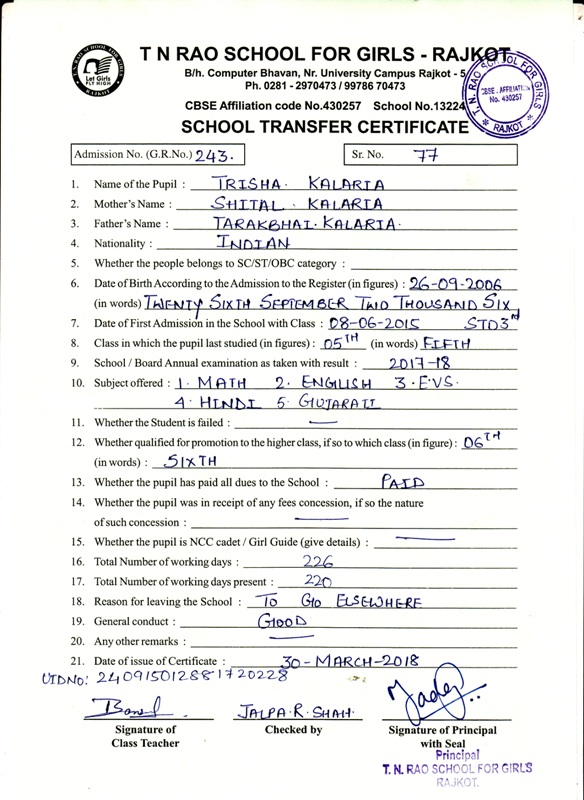 T. N. RAO SCHOOL FOR GIRLS
Let Girls
FLY HIGH
RAJKOT
T N RAO SCHOOL FOR GIRLS - RAJKOT
B/h. Computer Bhavan, Nr. University Campus Rajkot - 5
Ph. 0281 - 2970473 / 99786 70473
CBSE Affiliation code No.430257 School No.13224
T. N. RAO SCHOOL FOR GIRLS
CBSE. AFFILIATION
No. 430257
RAJKOT
SCHOOL TRANSFER CERTIFICATE
Admission No. (G.R.No.) 243. Sr. No. 77
1. Name of the Pupil : TRISHA. KALARIA
2. Mother's Name : SHITAL. KALARIA
3. Father's Name : TARAKBHAI. KALARIA.
4. Nationality : INDIAN
5. Whether the people belongs to SC/ST/OBC category :
6. Date of Birth According to the Admission to the Register (in figures) : 26-09-2006
(in words) TWENTY SIXTH SEPTEMBER TWO THOUSAND SIX
7. Date of First Admission in the School with Class : 08-06-2015 STD 3rd
8. Class in which the pupil last studied (in figures) : 05TH (in words) FIFTH
9. School / Board Annual examination as taken with result : 2017-18
10. Subject offered : 1. MATH 2. ENGLISH 3. EVS.
4. HINDI 5. GUJARATI
11. Whether the Student is failed : —
12. Whether qualified for promotion to the higher class, if so to which class (in figure) : 06TH
(in words) : SIXTH
13. Whether the pupil has paid all dues to the School : PAID
14. Whether the pupil was in receipt of any fees concession, if so the nature
of such concession : —
15. Whether the pupil is NCC cadet / Girl Guide (give details) : —
16. Total Number of working days : 226
17. Total Number of working days present : 220
18. Reason for leaving the School : TO GO ELSEWHERE
19. General conduct : GOOD
20. Any other remarks : —
21. Date of issue of Certificate : 30-MARCH-2018
UIDNO: 240915012881720228
JALPA. R. SHAH.
Signature of Checked by Signature of Principal
Class Teacher with Seal
Principal
T. N. RAO SCHOOL FOR GIRLS
RAJKOT.